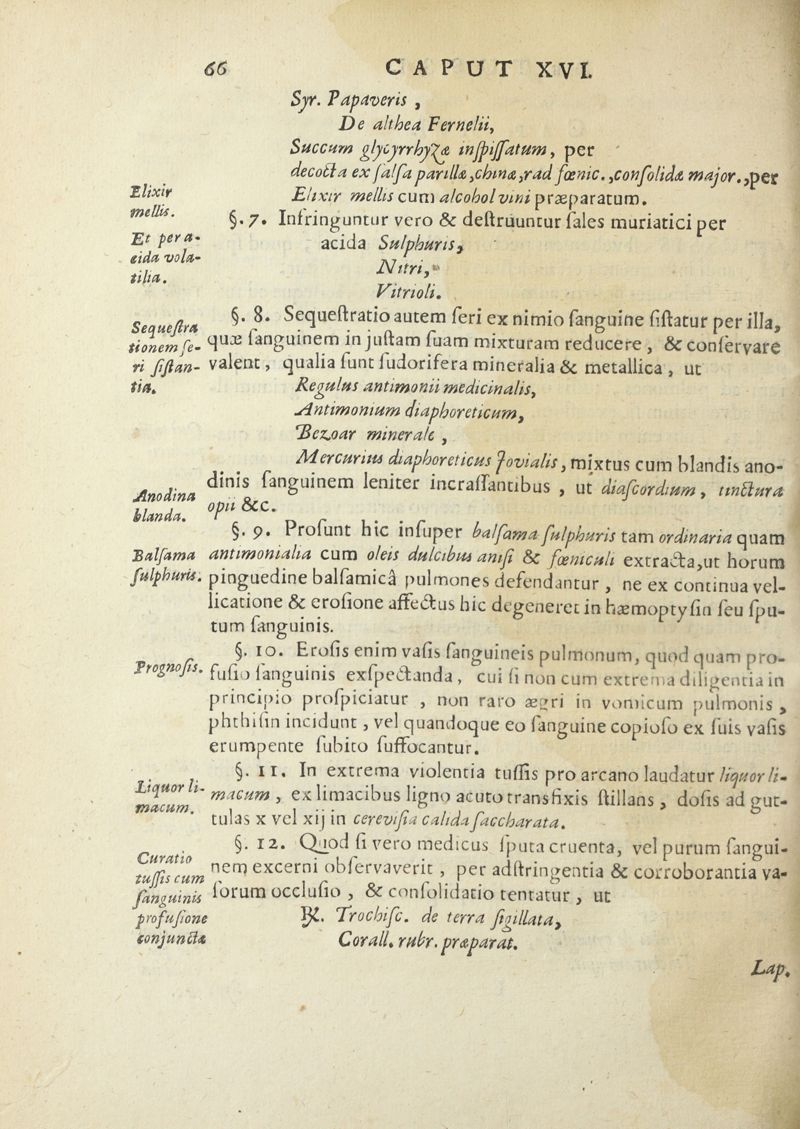 66 CAPUT XVI.
Syr. Papaveris ,
De althea Fernelii,
Succum glycyrrhyzæ inſpiſſatum, per
decocta ex ſalſa parilla ,china ,rad fœnic. ,conſolida major. ,per
Elixir mellis cum alcohol vini præparatum.
Elixir
mellis.
§. 7. Infringuntur vero & deſtruuntur ſales muriatici per
acida Sulphuris,
Nitri,
Vitrioli.
Et per a-
cida vola-
tilia.
§. 8. Sequeſtratio autem ſeri ex nimio ſanguine ſiſtatur per illa,
quæ ſanguinem in juſtam ſuam mixturam reducere , & conſervare
valent , qualia ſunt ſudorifera mineralia & metallica , ut
Sequeſtra
tionem ſe-
ri ſiſtan-
tia.
Regulus antimonii medicinalis,
Antimonium diaphoreticum,
Bezoar minerale ,
Mercurius diaphoreticus Jovialis, mixtus cum blandis ano-
dinis ſanguinem leniter incraſſantibus , ut diaſcordium, tinctura
opii &c.
Anodina
blanda.
§. 9. Proſunt hic inſuper balſama ſulphuris tam ordinaria quam
antimonialia cum oleis dulcibus aniſi & fœniculi extracta,ut horum
pinguedine balſamicâ pulmones defendantur , ne ex continua vel-
licatione & eroſione affectus hic degeneret in hæmoptyſin ſeu ſpu-
tum ſanguinis.
Balſama
ſulphuris.
§. 10. Eroſis enim vaſis ſanguineis pulmonum, quod quam pro-
fuſio ſanguinis exſpectanda, cui ſi non cum extrema diligentia in
principio proſpiciatur , non raro ægri in vomicum pulmonis ,
phthiſin incidunt , vel quandoque eo ſanguine copioſo ex ſuis vaſis
erumpente ſubito ſuffocantur.
Prognoſis.
§. 11. In extrema violentia tuſſis pro arcano laudatur liquor li-
macum , ex limacibus ligno acuto transfixis ſtillans , doſis ad gut-
tulas x vel xij in cereviſia calida ſaccharata.
Liquor li-
macum.
§. 12. Quod ſi vero medicus ſputa cruenta, vel purum ſangui-
nem excerni obſervaverit , per adſtringentia & corroborantia va-
ſorum occluſio , & conſolidatio tentatur , ut
Curatio
tuſſis cum
ſanguinis
profuſione
conjuncta
℞. Trochiſc. de terra ſigillata,
Corall. rubr. præparat.
Lap.